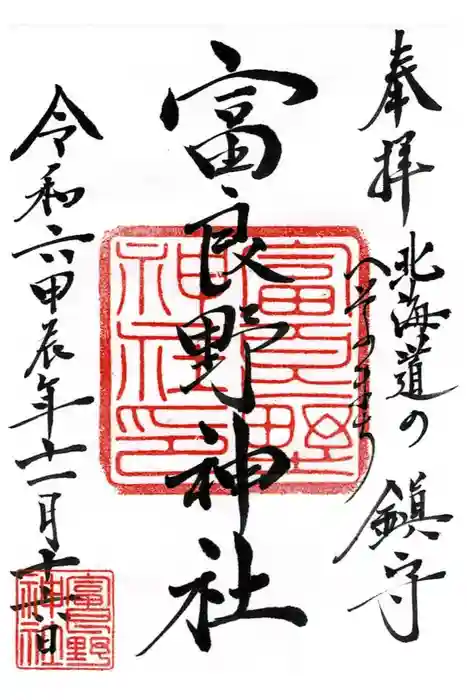 奉拝
北海道の
へそのまち
鎮守
富良野神社
富良野神社印
令和六甲辰年十一月十日
富良野神社